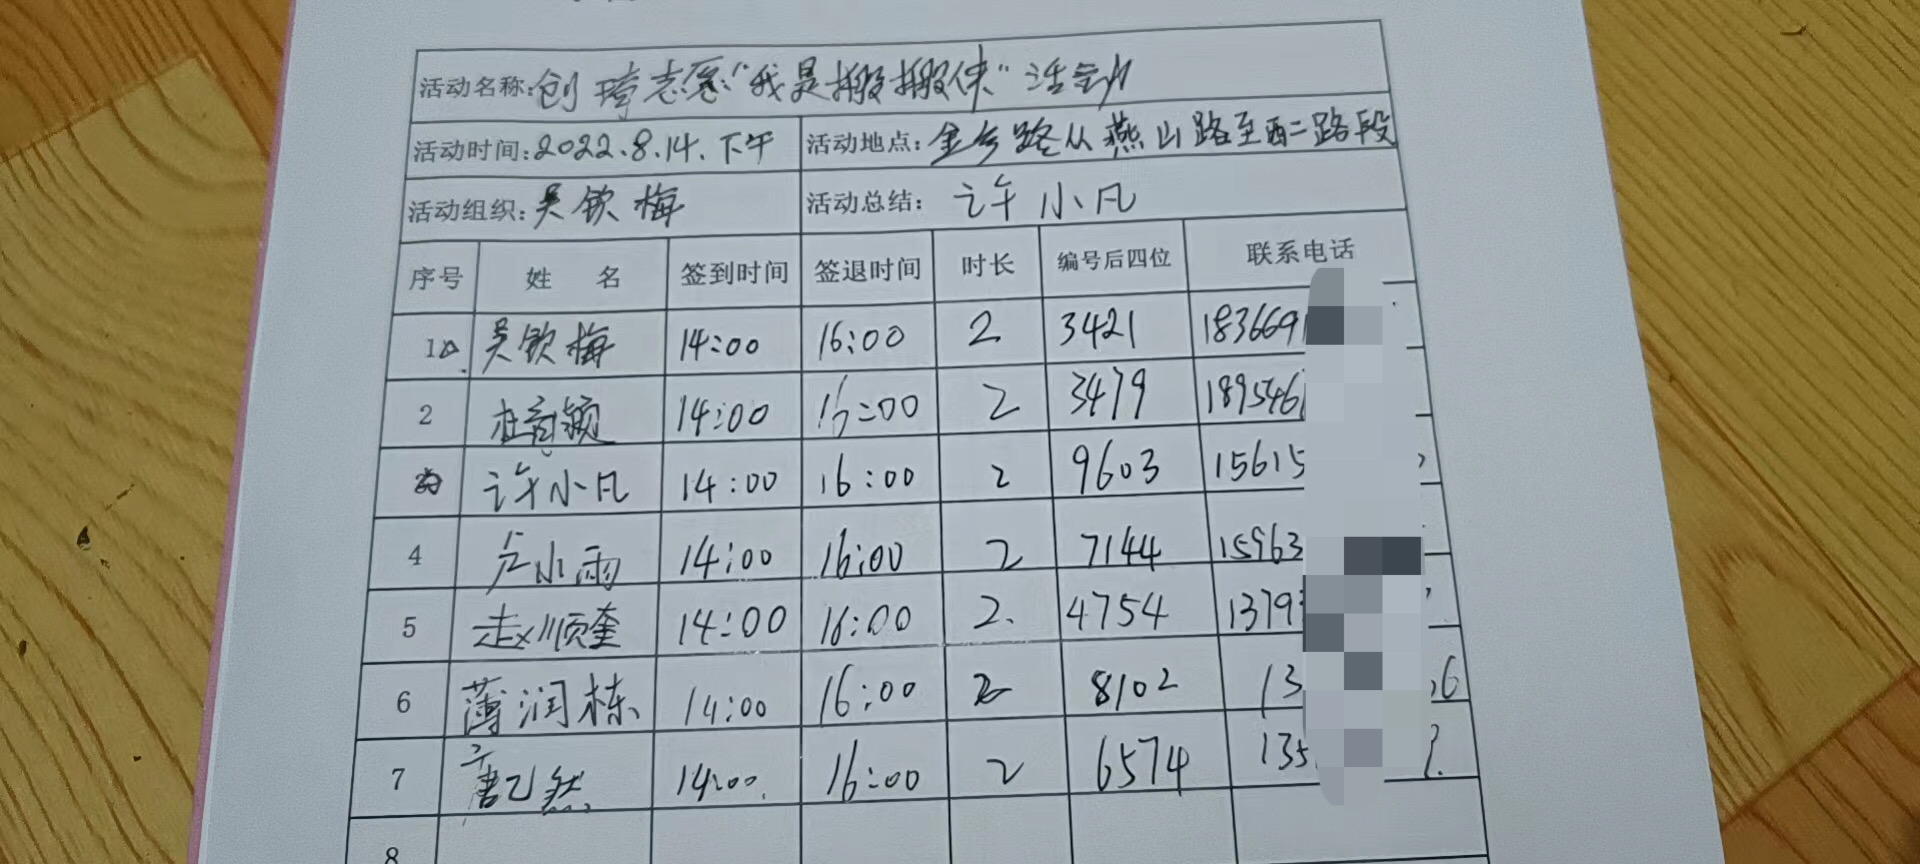 活动名称:创 志愿"我是搬搬侠"活动
活动时间:2022.8.14.下午 活动地点:金乡路从燕山路至西二路段
活动组织:吴钦梅 活动总结:许小凡
序号 姓 名 签到时间 签退时间 时长 编号后四位 联系电话
1 吴钦梅 14:00 16:00 2 3421 1836691
2 杜 颖 14:00 16:00 2 3479 1895461
许小凡 14:00 16:00 2 9603 15615
4 卢小雨 14:00 16:00 2 7144 15963
5 赵顺奎 14:00 16:00 2. 4754 1379
6 薄润栋 14:00 16:00 2 8102 13 6
7 乙然 14:00. 16:00 2 6574 135
8